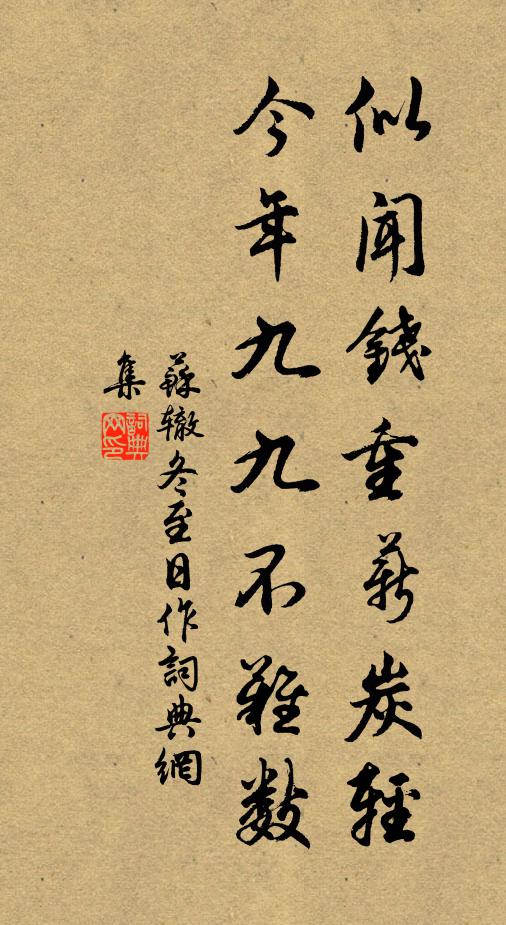 似聞錢重薪炭輕
今年九九不難數
蘇轍冬至日作詞典網
集
詞典網印